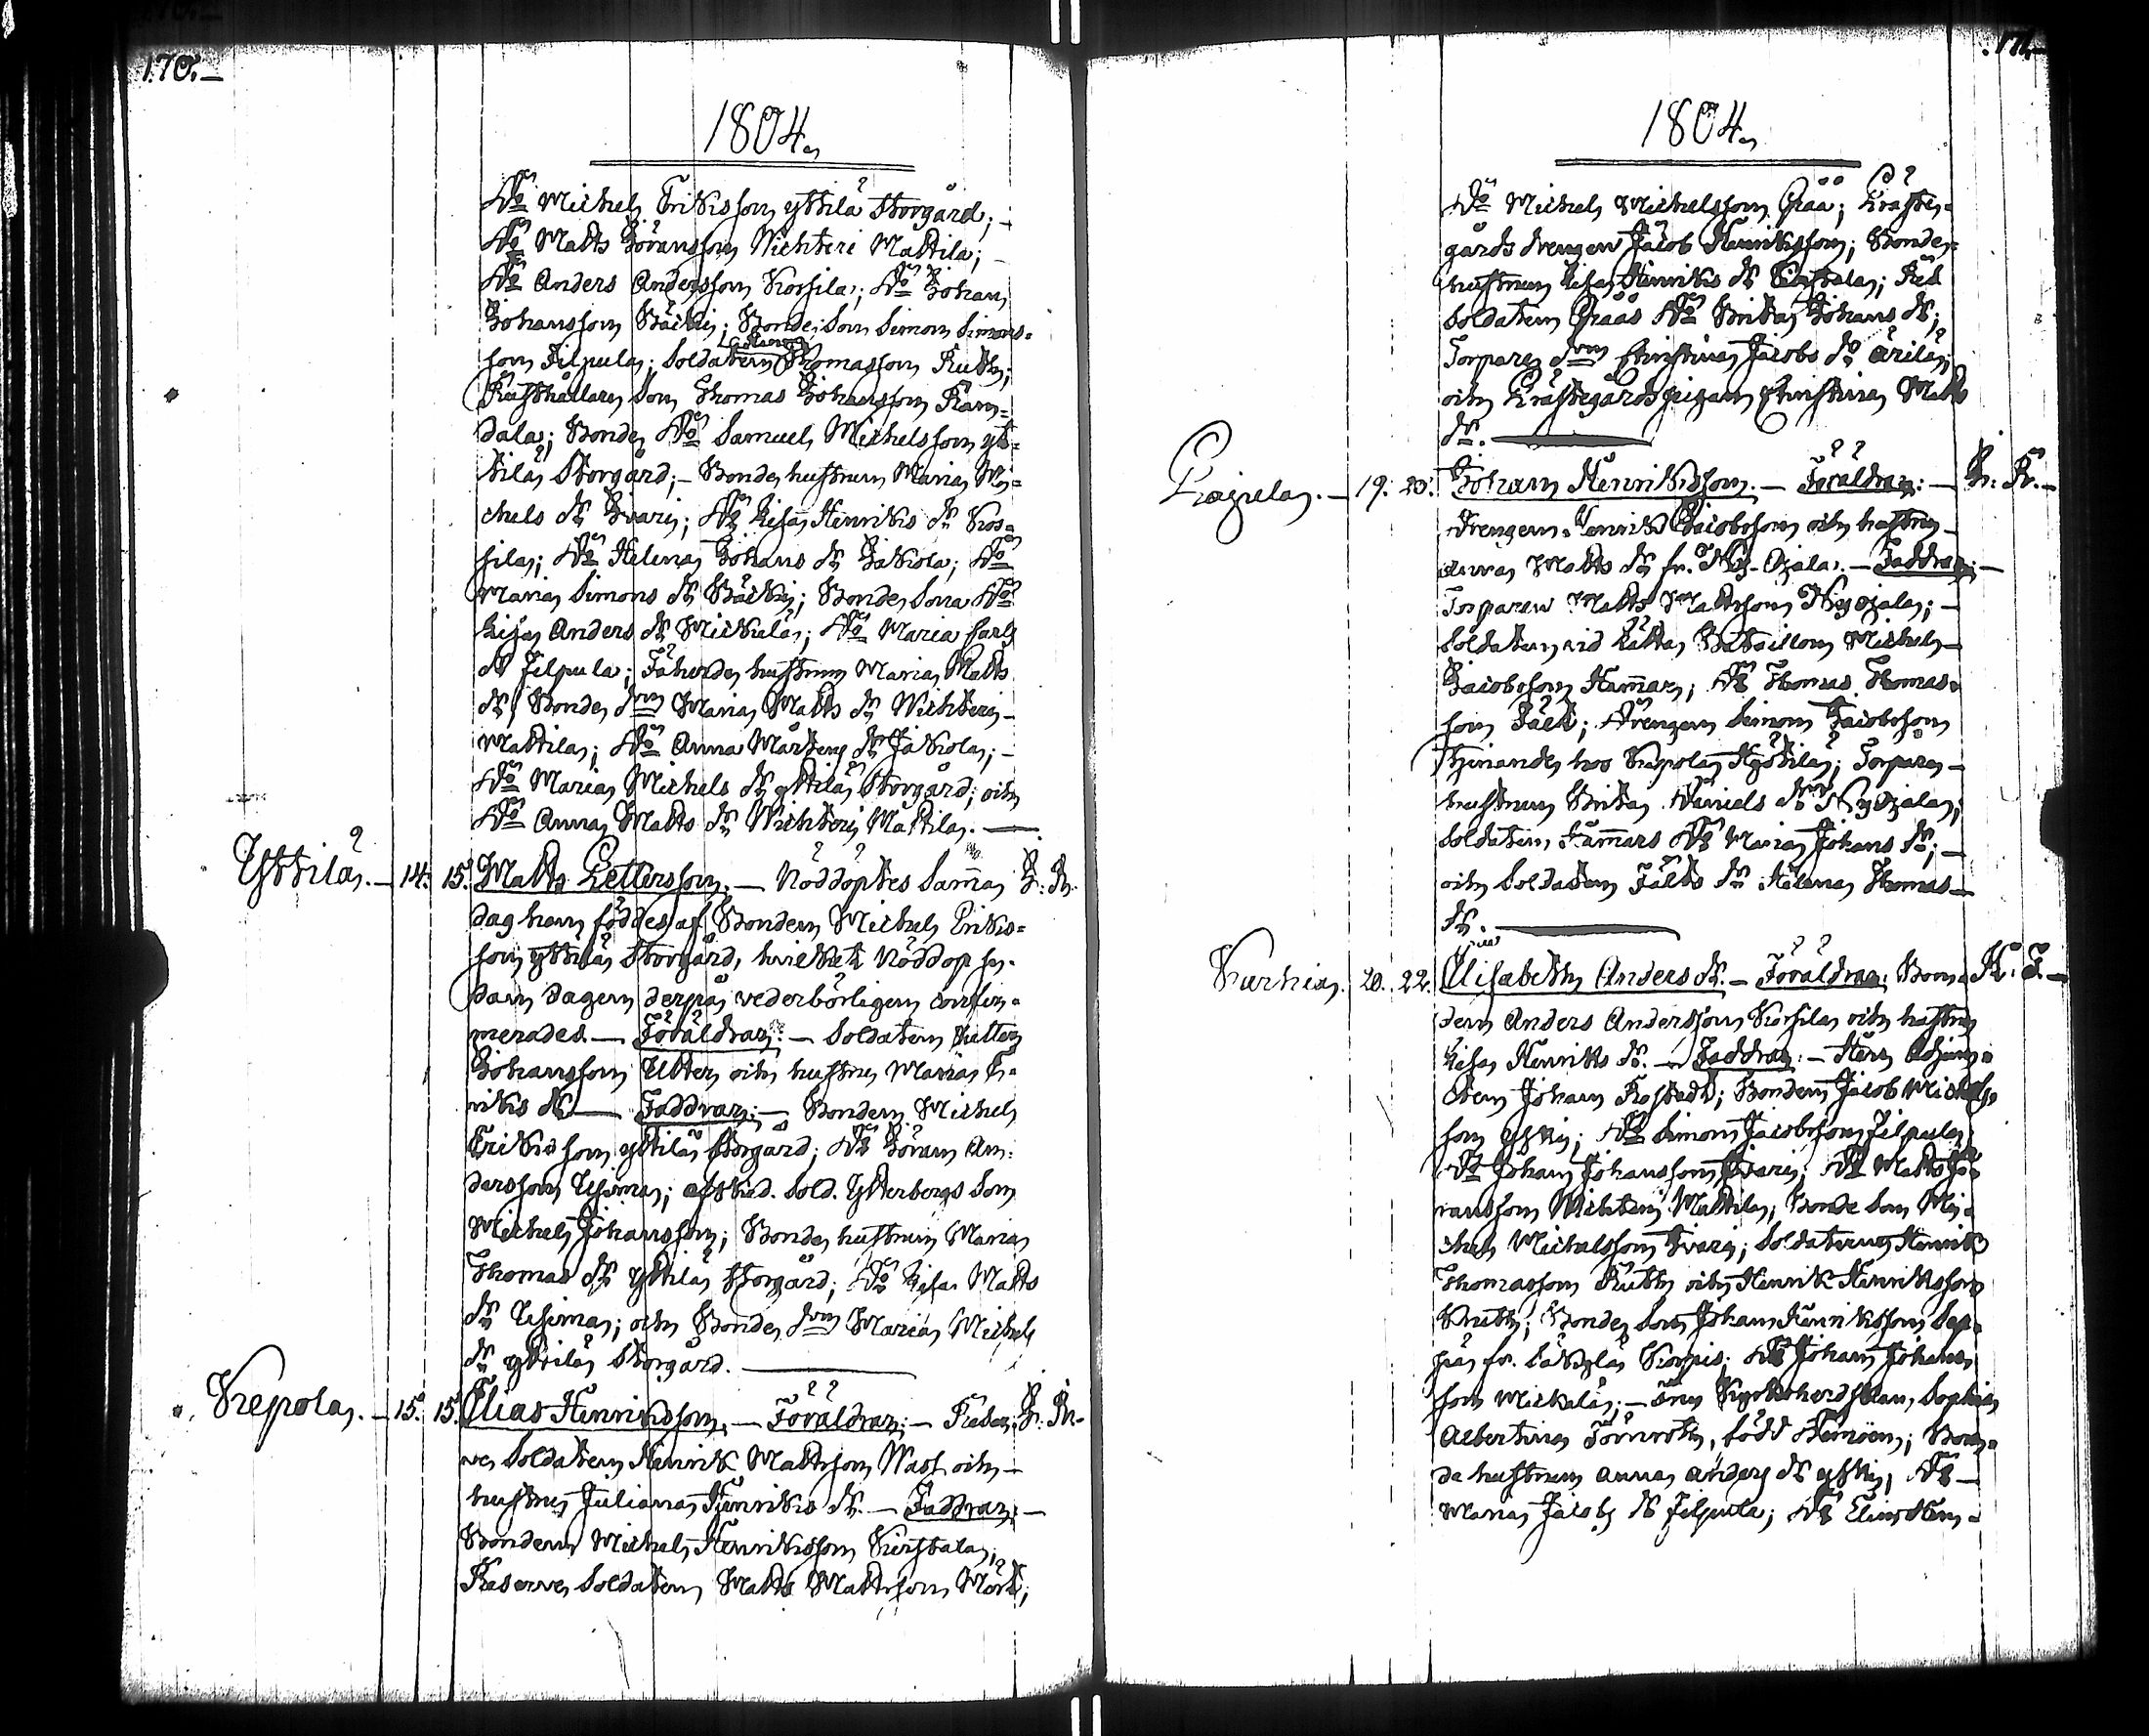 170.
1804.
D:o Michel Eriksson Yttilä Storgård;
D:o Matts Göransson Wichteri Mattila;
D:o Anders Andersson Korsila; D:o Johan
Johansson Bäcki; Bonde Son Simon Simons-
son Filpula; Soldaten Thomasson Ruth;
Rusthållare Son Thomas Johansson Ram-
dala; Bonde D:o Samuel Michelsson Yt-
tilä Storgård; Bonde hustrun Maria Mi-
chels dr Ivari; D:o Lisa Henriks dr Kor-
sila; D:o Helena Johans dr Jakola; D:o
Maria Simons dr Bäcki; Bonde Sona D:o
Lisa Anders dr Mickulä; D:o Maria Carls
dr Filpula; Fäherde hustrun Maria Matts
dr; Bonde drn Maria Matts dr Wichteri
Mattila; D:o Anna Mårtens dr Jakola;
D:o Maria Michels dr Yttilä Storgård; och
D:o Anna Matts dr Wichteri Mattila.
Yttilä. 14. 15. Matts Gettersson. Nöddöptes samma
dag han föddes af Bonden Michel Eriks-
son Yttilä Storgård, hvilket Nöddop se-
dan dagen derpå vederbörligen confir-
merades. Föräldrar: Soldaten
Johansson Utter och hustru Maria E-
riks dr Faddrar: Bonden Michel
Eriksson Yttilä Storgård; D:o Göran An-
dersson Uhima; afsked. Sold. Ytterbergs Son
Michel Johansson; Bonde hustrun Maria
Thomas dr Yttilä Storgård; D:o Lisa Matts
dr Uhima; och Bonde drn Maria Michels
dr Yttilä Storgård.
Kepola. 15. 15. Elias Henriksson. Föräldrar: Reser-
ve Soldaten Henrik Mattsson Wass och
hustru Juliana Henriks dr. Faddrar:
Bonden Michel Henriksson Kurstala;
Reserve Soldaten Matts Mattsson Mört;
171.
1804.
D:o Michel Michelsson Gråå; Präste-
gårds drengen Jacob Henriksson; Bonde-
hustrun Lisa Henriks dr Kurstala; Res
Soldaten Gråås D:o Brita Johans dr;
Torpare drn Christina Jacobs dr Ärilä;
och Prästegårdspigan Christina Matts
dr.
Prajula. 19. 20. Johan Henriksson. Föräldrar:
Drengen Henrik Jacobsson och hustru
Anna Matts dr fr. Ny-Ojala. Faddrar:
Torparen Matts Mattsson Nyojala;
Soldaten vid Lätta Bataillon Michel
Jacobsson Hammar; D:o Thomas Thomas-
son Fält; Drengen Simon Jacobsson
tjenande hos Kepola Hyötilä; Torpare
hustrun Brita Daniels dr Nyojala;
Soldaten Hammars D:o Maria Johans dr;
och Soldaten Fälts dr Helena Thomas
dr.
Kurhia. 20. 22. Elisabeth Anders dr. Föräldrar: Bon-
den Anders Andersson Korsila och hustru
Lisa Henriks dr. Faddrar: Herr Adjunc-
ten Johan Rostedt; Bonden Jacob Michels-
son Yski; D:o Simon Jacobsson Filpula;
D:o Johan Johansson Ivari; D:o Matts Gö-
ransson Wichteri Mattila; Bonde Son Mi-
chel Michelsson Ivari; Soldaterne Henrik
Thomasson Ruth och Henrik Henriksson
Knuth; Bonde Son Johan Henriksson Sep-
pä fr. Säkylä Korpis; D:o Johan Johans-
son Mickula; Fru Sophia
Albertina Törnroth, född; Bon-
de hustrun Anna Anders dr Yski; D:o
Maria Jacobs dr Filpula; D:o Elin Hen-